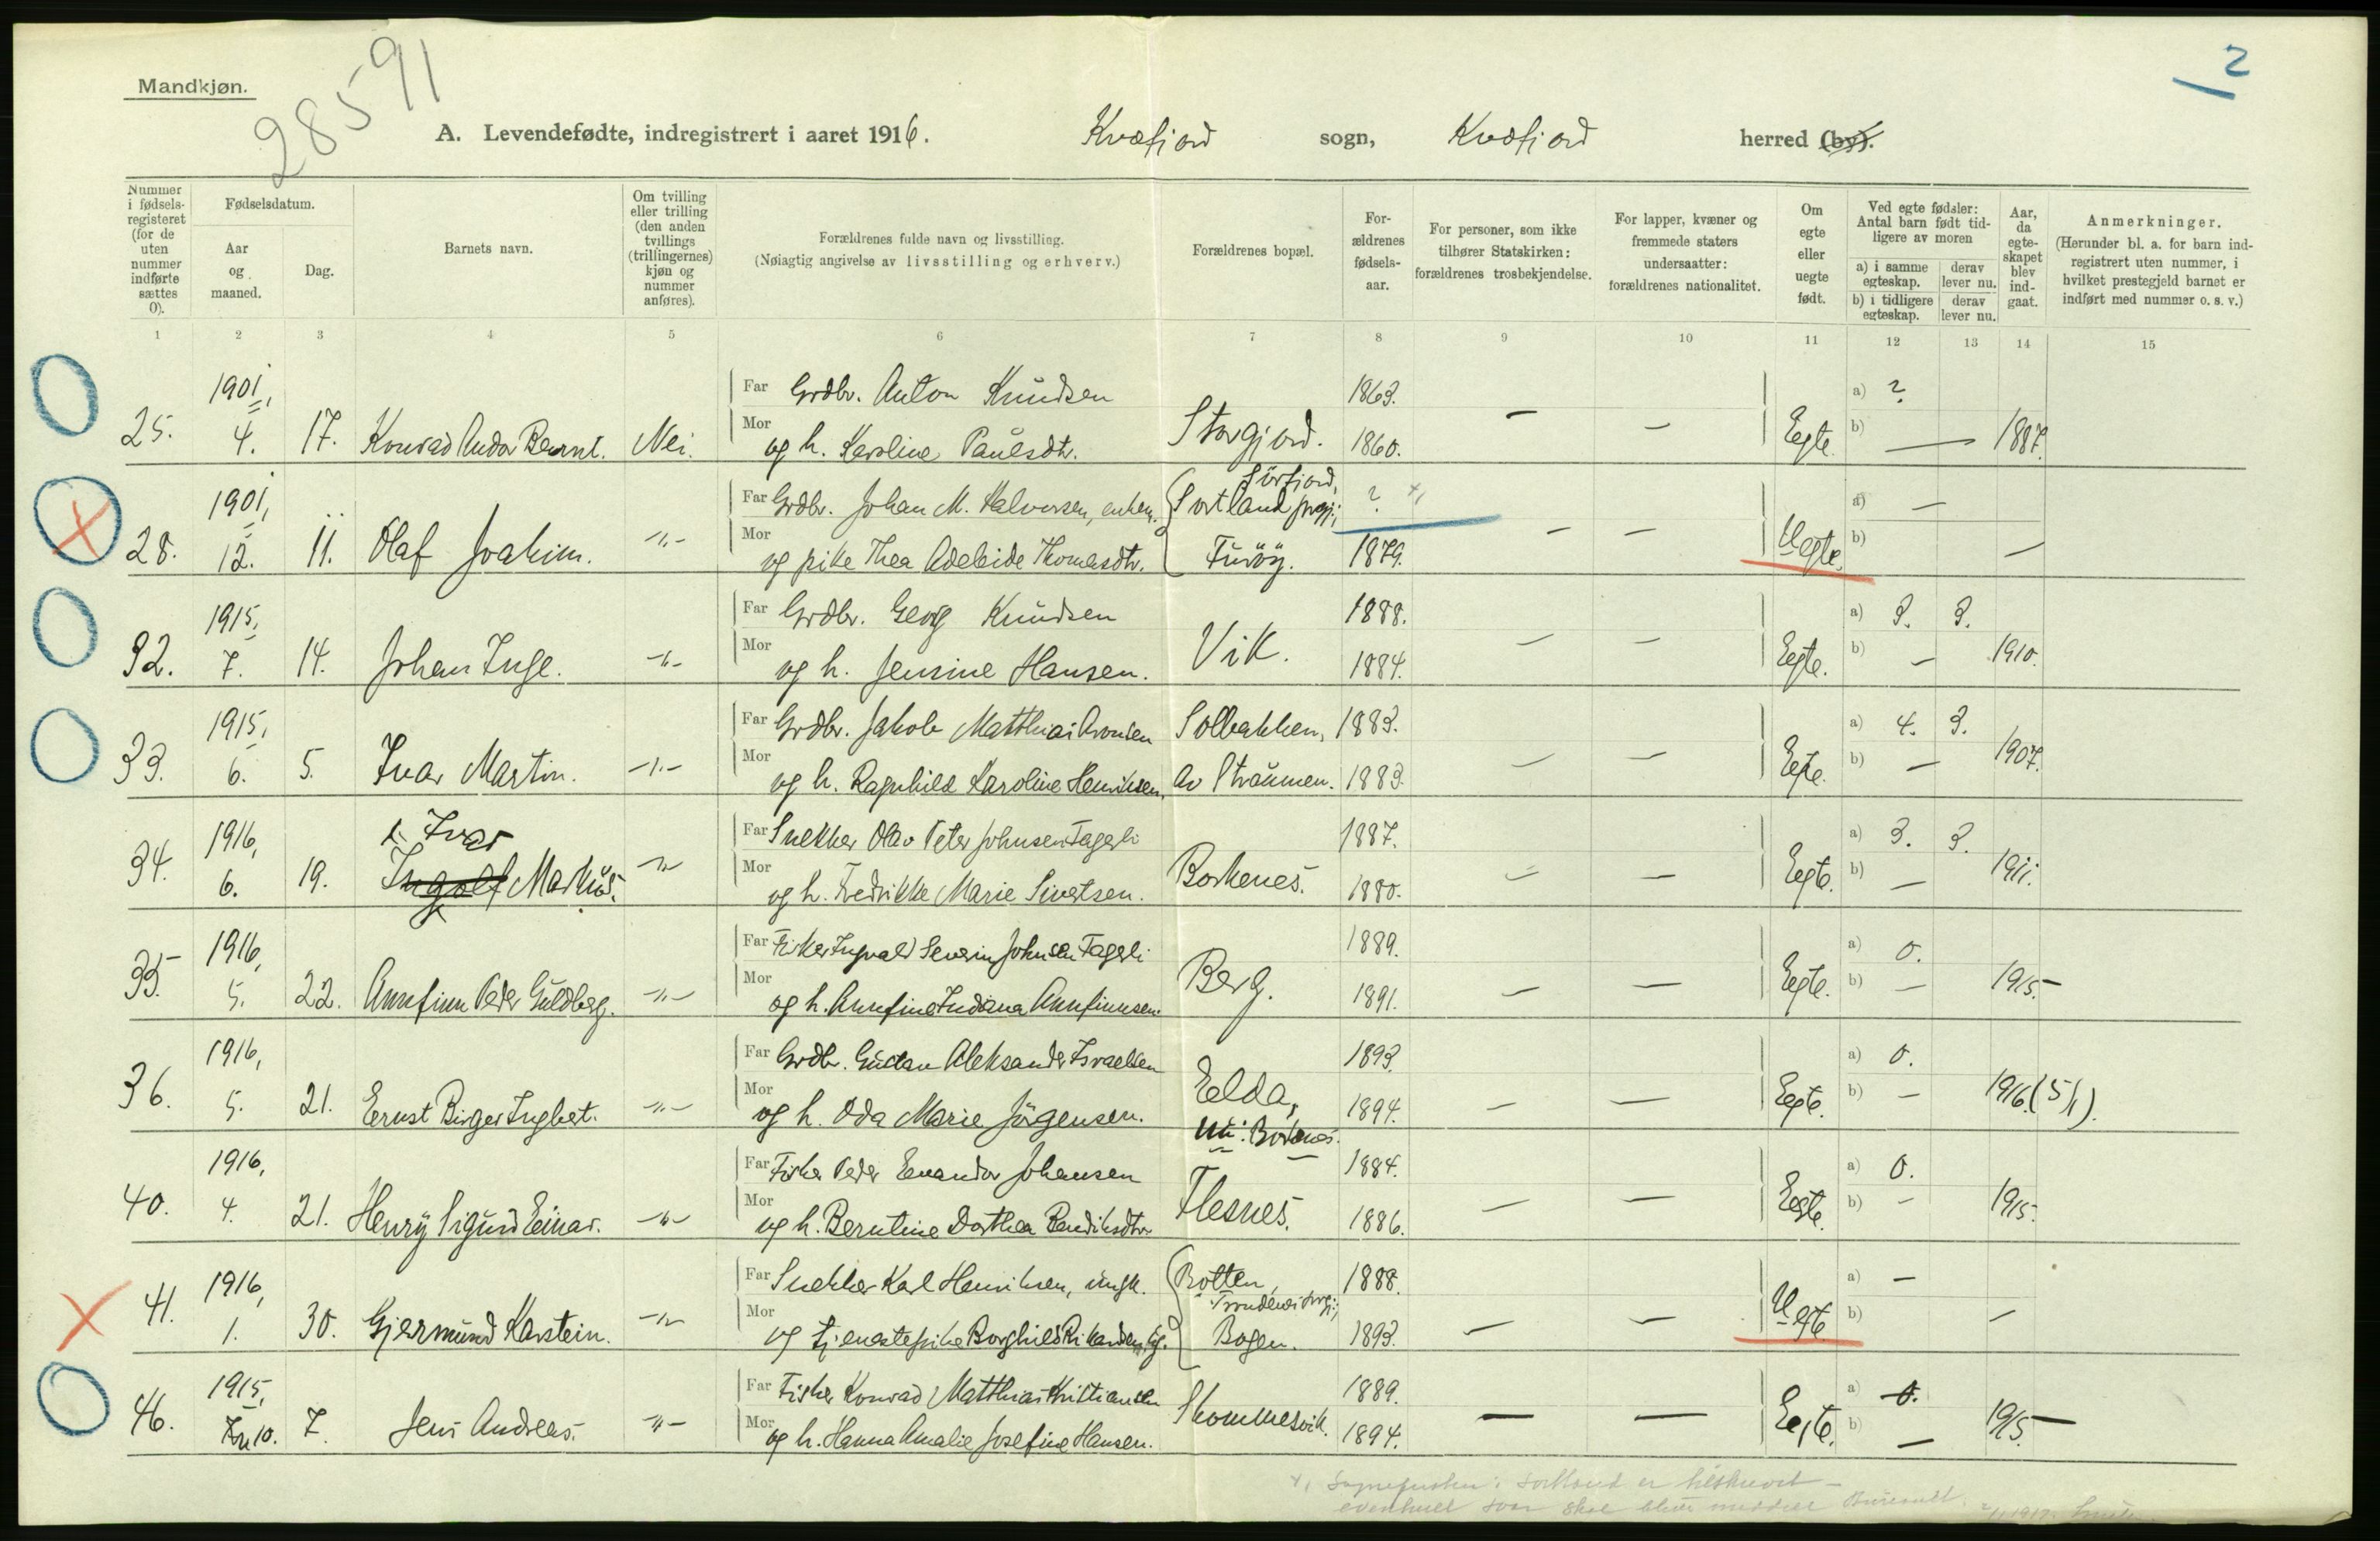 Mandkjøn.
28591
2
A. Levendefødte, indregistrert i aaret 1916. Kvæfjord sogn, Kvæfjord herred (by).
Nummer i fødsels-registeret (for de uten nummer indførte sættes 0).
Fødselsdatum.
Aar og maaned.
Dag.
Barnets navn.
Om tvilling eller trilling (den anden tvillings (trillingernes) kjøn og nummer anføres).
Forældrenes fulde navn og livsstilling.
(Nøiagtig angivelse av livsstilling og erhverv.)
Forældrenes bopæl.
For-ældrenes fødsels-aar.
For personer, som ikke tilhører Statskirken: forældrenes trosbekjendelse.
For lapper, kvæner og fremmede staters undersaatter: forældrenes nationalitet.
Om egte eller uegte født.
Ved egte fødsler: Antal barn født tid-ligere av moren
a) i samme egteskap. derav lever nu.
b) i tidligere egteskap. derav lever nu.
Aar, da egte-skapet blev ind-gaat.
Anmerkninger.
(Herunder bl. a. for barn ind-registrert uten nummer, i hvilket prestegjeld barnet er indført med nummer o. s. v.)
1 2 3 4 5 6 7 8 9 10 11 12 13 14 15
1901, Far Grdbr. Anton Knudsen 1863. a) ?
25. 4. 17. Konrad Andor Bernt. Nei. Mor og h. Karoline Paulsdtr. Storgjord. 1860. — — Egte. b) — 1887.
1901, Far Grdbr. Johan M. Halvorsen, enkem. Sörfjord, Sortland prgj., ? x) a) —
28. 12. 11. Olaf Joakim. -"- Mor og pike Thea Adeleide Thomasdtr. 1879. — — Uegte. b) —
1915, Far Grdbr. Georg Knudsen 1888. a) 3. 3.
32. 7. 14. Johan Inge. -"- Mor og h. Jensine Hansen. Vik. 1884. — — Egte. b) — 1910.
1915, Far Grdbr. Jakob Matthias Aronsen Solbakken, 1883. a) 4. 3.
33. 6. 5. Ivar Martin. -"- Mor og h. Ragnhild Karoline Henriksen. av Straumen. 1883. — — Egte. b) — 1907.
1916, x Ivar Far Snekker Olav Peter Johnsen Fagerli 1887. a) 3. 3.
34. 6. 19. Ingolf Markus. -"- Mor og h. Fredrikke Marie Sivertsen. Borkenes. 1880. — — Egte. b) — 1911.
1916, Far Fisker Ingvald Severin Johnsen Fagerli 1889. a) 0.
35. 5. 22. Arnfinn Peder Guldberg. -"- Mor og h. Arnfine Indiana Arnfinnsen. Berg. 1891. — — Egte. b) — 1915.
1916, Far Grdbr. Gustav Aleksander Israelsen 1893. a) 0.
36. 5. 21. Ernst Birger Ingbert. -"- Mor og h. Oda Marie Jörgensen. Eelda, 1894. — — Egte. b) — 1916. (5/1).
1916, Far Fisker Peder Evandor Johansen 1884. a) 0.
40. 4. 21. Henry Sigurd Einar. -"- Mor og h. Berntine Dorthea Bendiksdtr. Flesnes. 1886. — — Egte. b) — 1915.
1916, Far Snekker Karl Henriksen, ungk. Botten, Trondenes prgj., 1888. a) —
41. 1. 30. Gjermund Karstein. -"- Mor og tjenestepike Borghild Rikardsen, ug. Bogen. 1893. — — Uegte b) —
1915, Far Fisker Konrad Matthias Kristiansen 1889. a) 0.
46. 10. 7. Jens Andreas. -"- Mor og h. Hanna Amalie Josefine Hansen. Skommesvik. 1894. — — Egte. b) — 1915.
x) Sognepresten i Sortland er tilskrevet —
eventuelt svar skal blive meddelt Bureauet.